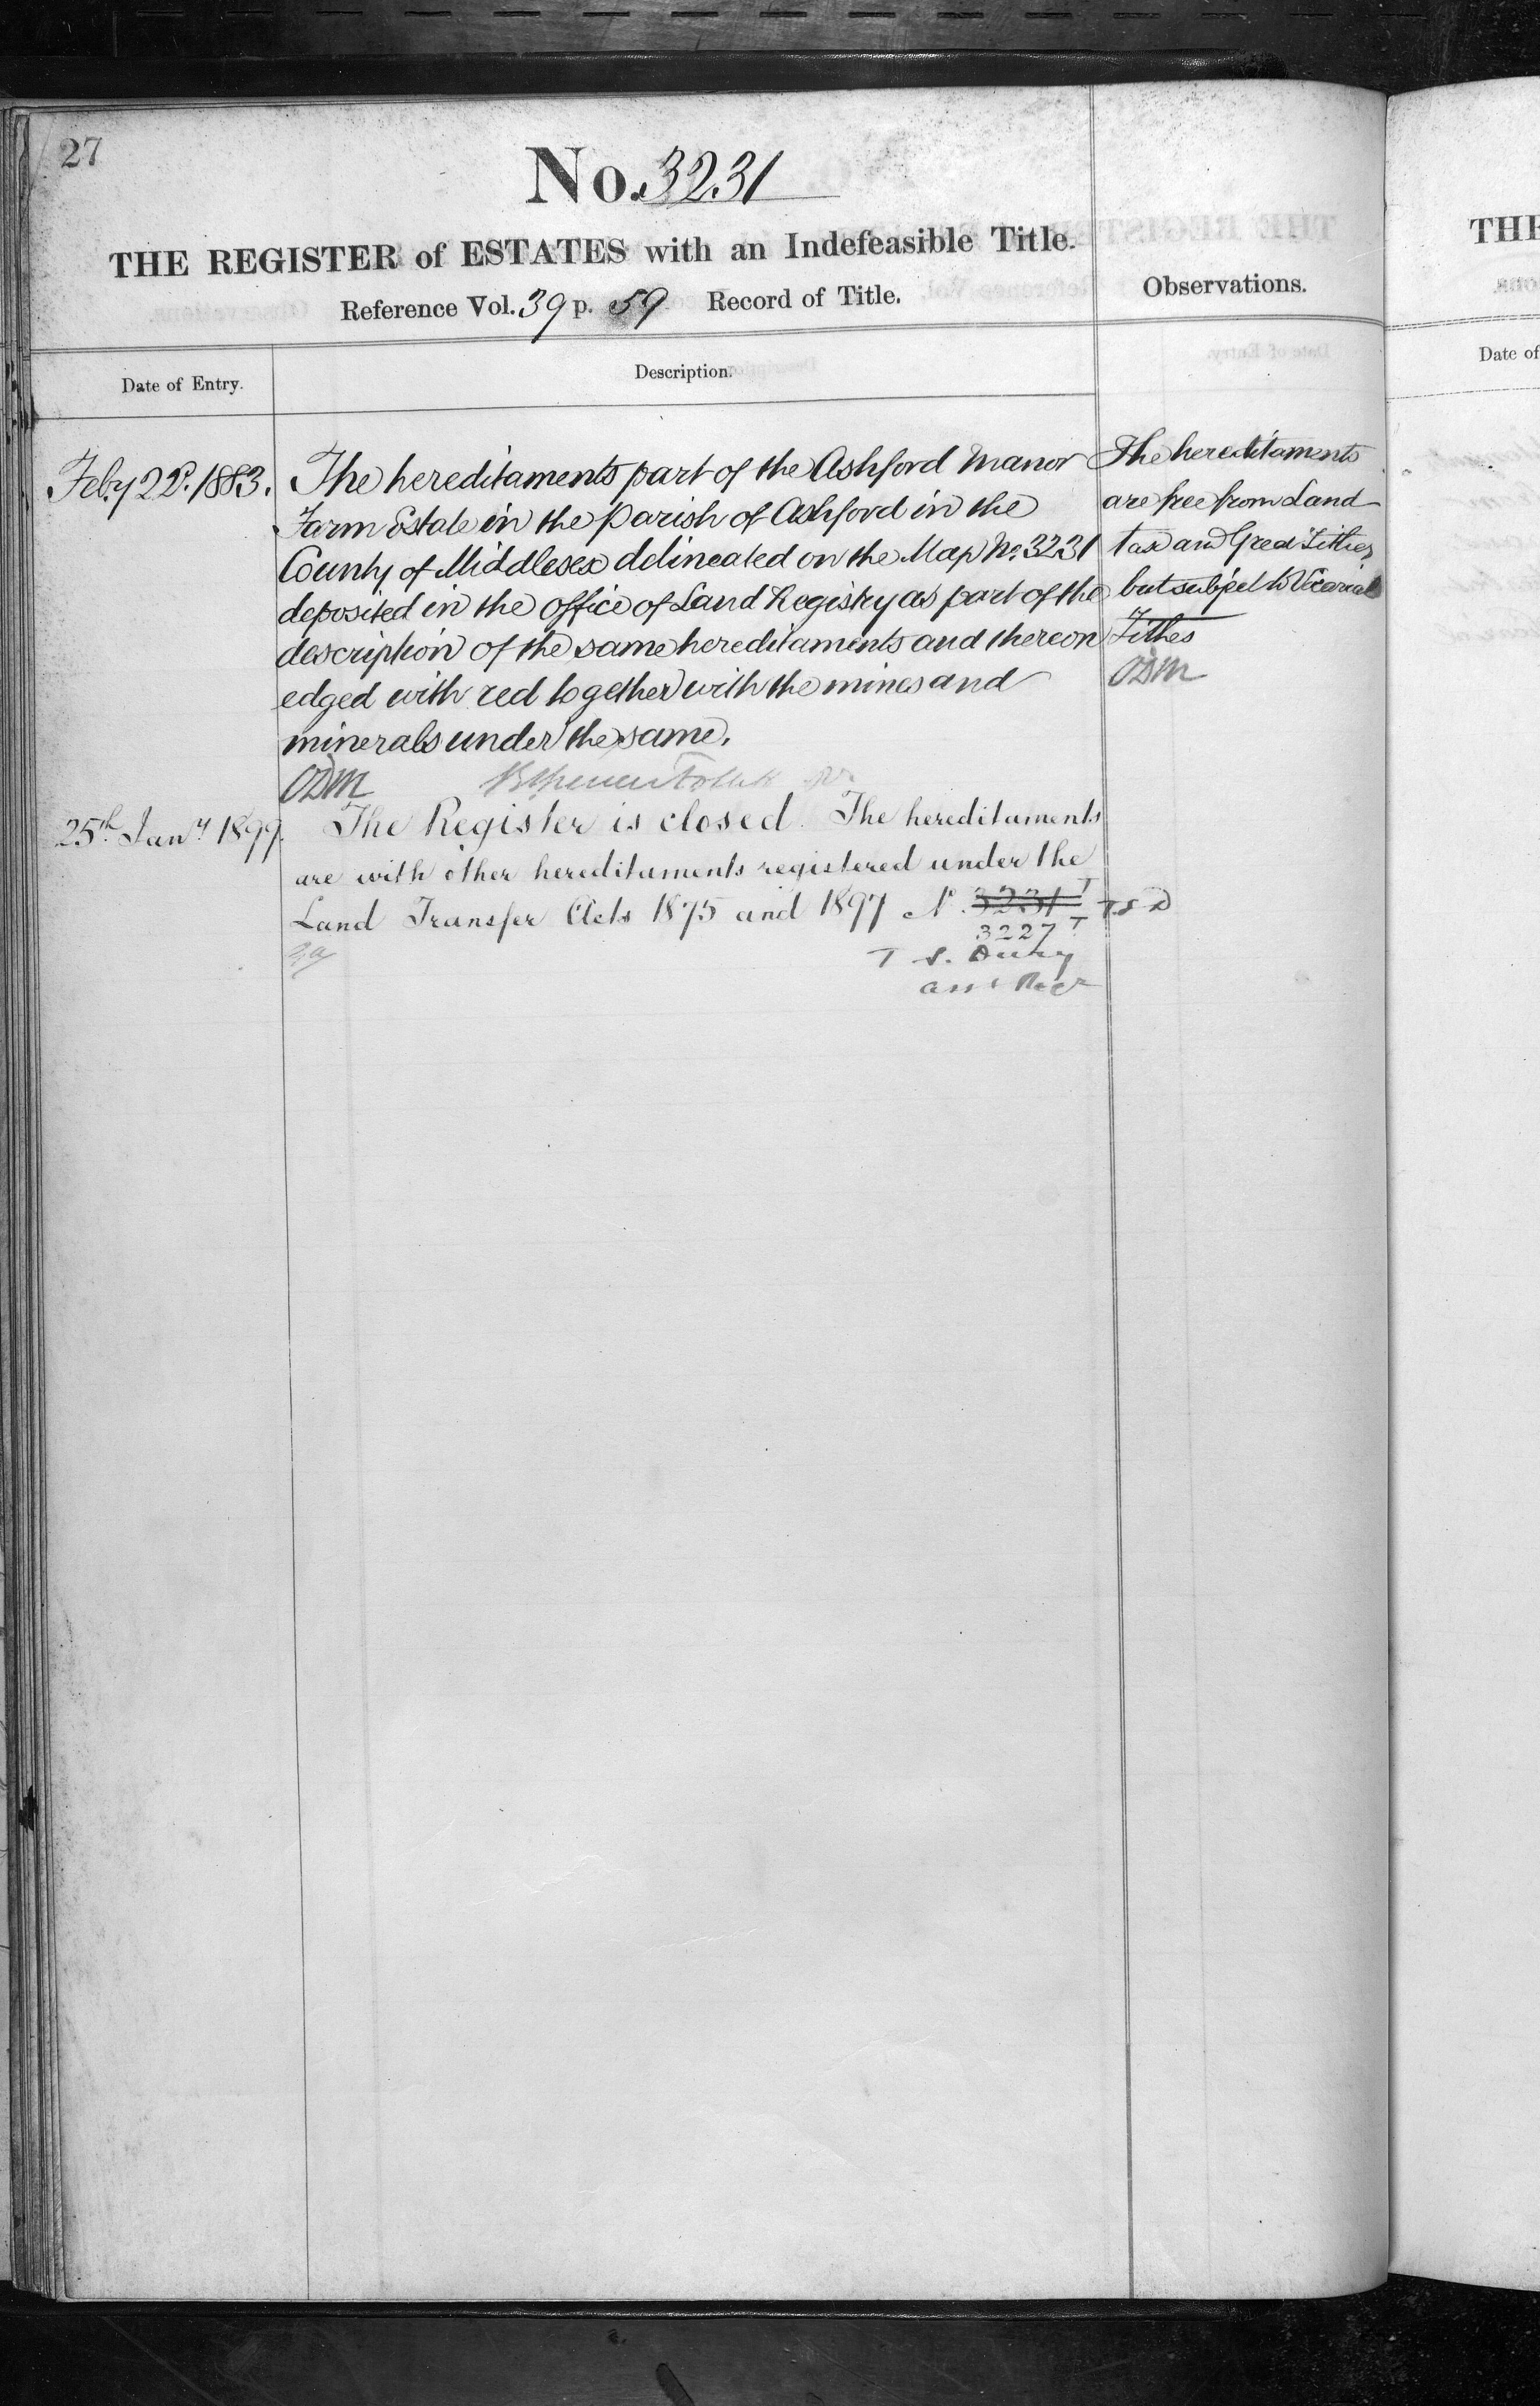 27
No. 3231
THE REGISTER of ESTATES with an Indefeasible Title.
Reference Vol. 39 p. 59 Record of Title.
Observations.
Date of Entry.
Description.
Feby 22d. 1883.
The hereditaments part of the Ashford Manor
Farm Estate in the parish of Ashford in the
County of Middlesex delineated on the Map No. 3231
deposited in the office of Land Registry as part of the
description of the same hereditaments and thereon
edged with red together with the mines and
minerals under the same.
ODM
The hereditaments
are free from Land
tax and Great Tithes
but subject to Vicarial
Tithes
ODM
25th Jany 1899.
The Register is closed. The hereditaments
are with other hereditaments registered under the
Land Transfer Acts 1875 and 1897 No. 3231 T TSD
3227 T
T S. Dury
Asst Regr
THE
Date of